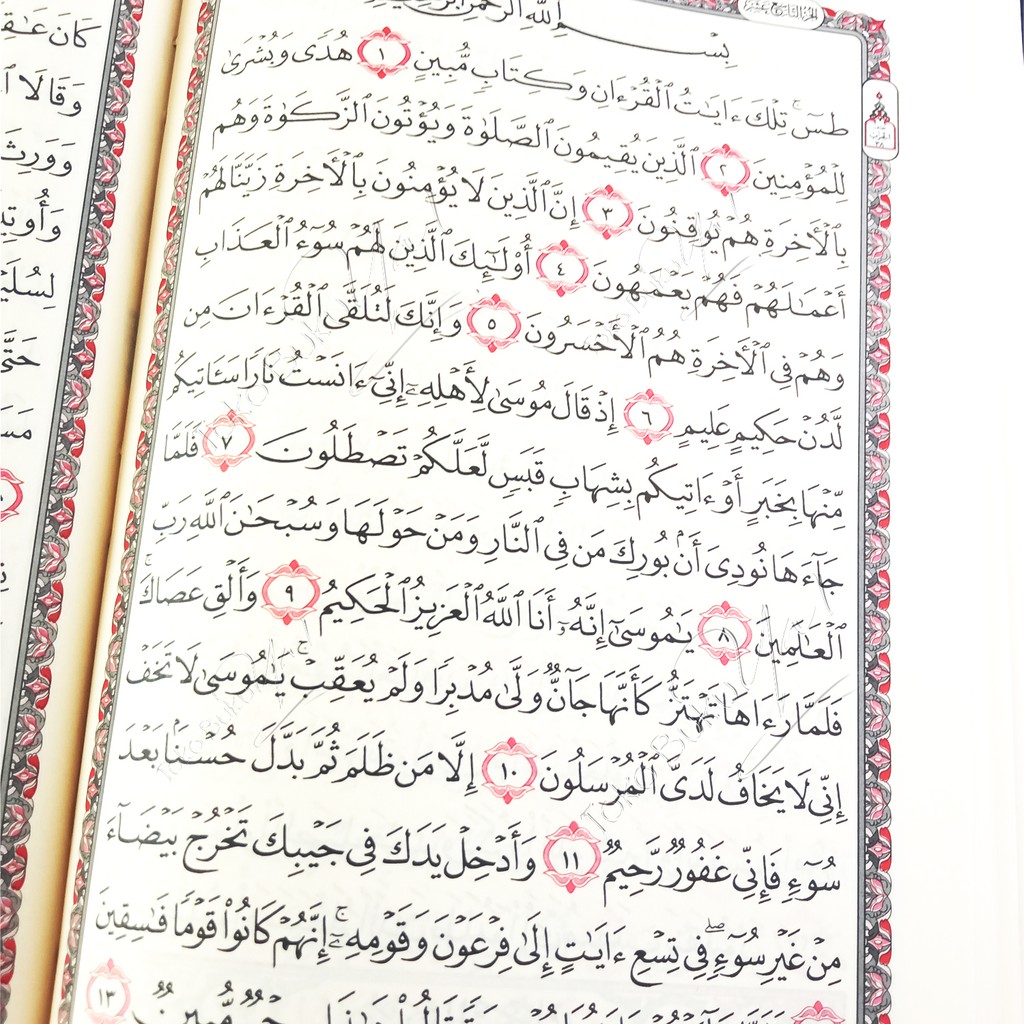 الجزء التاسع عشر
بِسْمِ ٱللَّهِ ٱلرَّحْمَٰنِ ٱلرَّحِيمِ
طسٓ ۚ تِلْكَ ءَايَٰتُ ٱلْقُرْءَانِ وَكِتَابٍ مُّبِينٍ ١ هُدًى وَبُشْرَىٰ
لِلْمُؤْمِنِينَ ٢ ٱلَّذِينَ يُقِيمُونَ ٱلصَّلَوٰةَ وَيُؤْتُونَ ٱلزَّكَوٰةَ وَهُم
بِٱلْءَاخِرَةِ هُمْ يُوقِنُونَ ٣ إِنَّ ٱلَّذِينَ لَا يُؤْمِنُونَ بِٱلْءَاخِرَةِ زَيَّنَّا لَهُمْ
أَعْمَٰلَهُمْ فَهُمْ يَعْمَهُونَ ٤ أُوْلَٰٓئِكَ ٱلَّذِينَ لَهُمْ سُوٓءُ ٱلْعَذَابِ
وَهُمْ فِى ٱلْءَاخِرَةِ هُمُ ٱلْأَخْسَرُونَ ٥ وَإِنَّكَ لَتُلَقَّى ٱلْقُرْءَانَ مِن
لَّدُنْ حَكِيمٍ عَلِيمٍ ٦ إِذْ قَالَ مُوسَىٰ لِأَهْلِهِۦٓ إِنِّىٓ ءَانَسْتُ نَارًا سَـَٔاتِيكُم
مِّنْهَا بِخَبَرٍ أَوْ ءَاتِيكُم بِشِهَابٍ قَبَسٍ لَّعَلَّكُمْ تَصْطَلُونَ ٧ فَلَمَّا
جَآءَهَا نُودِىَ أَنۢ بُورِكَ مَن فِى ٱلنَّارِ وَمَنْ حَوْلَهَا وَسُبْحَٰنَ ٱللَّهِ رَبِّ
ٱلْعَٰلَمِينَ ٨ يَٰمُوسَىٰٓ إِنَّهُۥٓ أَنَا ٱللَّهُ ٱلْعَزِيزُ ٱلْحَكِيمُ ٩ وَأَلْقِ عَصَاكَ ۚ
فَلَمَّا رَءَاهَا تَهْتَزُّ كَأَنَّهَا جَآنٌّ وَلَّىٰ مُدْبِرًا وَلَمْ يُعَقِّبْ ۚ يَٰمُوسَىٰ لَا تَخَفْ
إِنِّى لَا يَخَافُ لَدَىَّ ٱلْمُرْسَلُونَ ١٠ إِلَّا مَن ظَلَمَ ثُمَّ بَدَّلَ حُسْنًۢا بَعْدَ
سُوٓءٍ فَإِنِّى غَفُورٌ رَّحِيمٌ ١١ وَأَدْخِلْ يَدَكَ فِى جَيْبِكَ تَخْرُجْ بَيْضَآءَ
مِنْ غَيْرِ سُوٓءٍ ۖ فِى تِسْعِ ءَايَٰتٍ إِلَىٰ فِرْعَوْنَ وَقَوْمِهِۦٓ ۚ إِنَّهُمْ كَانُوا۟ قَوْمًا فَٰسِقِينَ
مُّبِينٌ ١٣
كَانَ
وَقَالَا
وَوَرِثَ
حَتَّىٰ